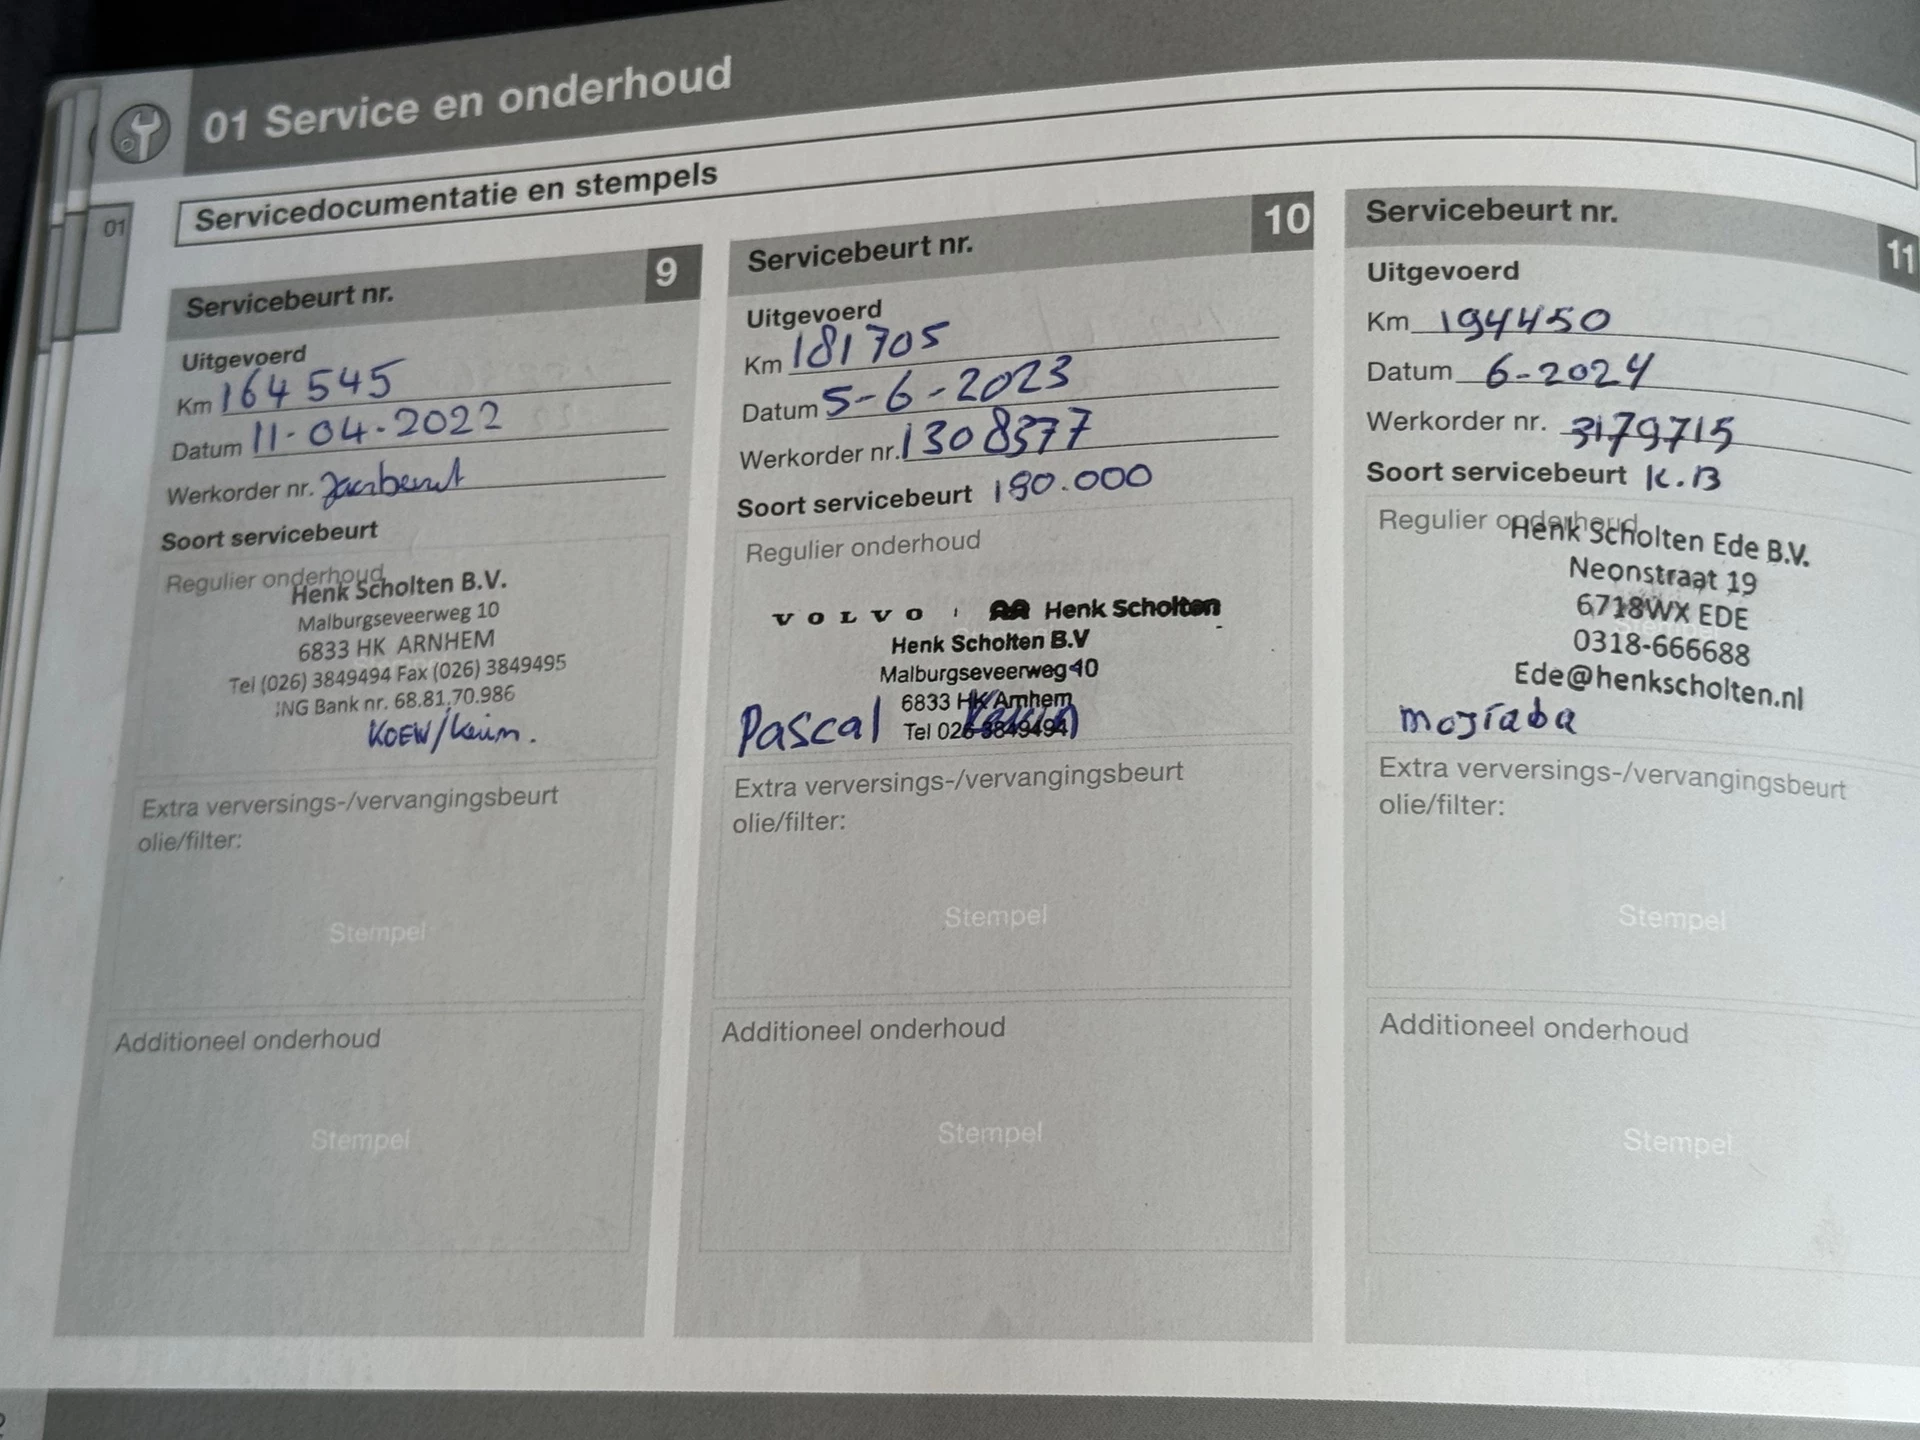 01 Service en onderhoud
01
Servicedocumentatie en stempels
Servicebeurt nr. 9
Uitgevoerd
Km 164 545
Datum 11-04-2022
Werkorder nr. Jaarbeurt
Soort servicebeurt
Regulier onderhoud
Henk Scholten B.V.
Malburgseveerweg 10
6833 HK ARNHEM
Tel (026) 3849494 Fax (026) 3849495
ING Bank nr. 68.81.70.986
Extra verversings-/vervangingsbeurt
olie/filter:
Stempel
Additioneel onderhoud
Stempel
Servicebeurt nr. 10
Uitgevoerd
Km 181705
Datum 5-6-2023
Werkorder nr. 1308377
Soort servicebeurt 180.000
Regulier onderhoud
VOLVO Henk Scholten
Henk Scholten B.V
Malburgseveerweg 10
6833 HK Arnhem
Pascal Tel 026 3849494
Extra verversings-/vervangingsbeurt
olie/filter:
Stempel
Additioneel onderhoud
Stempel
Servicebeurt nr. 11
Uitgevoerd
Km 194450
Datum 6-2024
Werkorder nr. 3179715
Soort servicebeurt K.B
Regulier onderhoud
Henk Scholten Ede B.V.
Neonstraat 19
6718WX EDE
0318-666688
Ede@henkscholten.nl
mojtaba
Extra verversings-/vervangingsbeurt
olie/filter:
Stempel
Additioneel onderhoud
Stempel